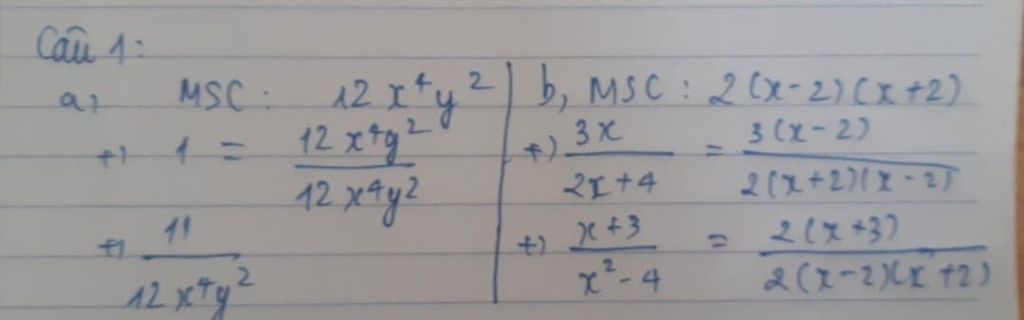 Câu 1:
a, MSC: 12x⁴y²
+) 1 = 12x⁴y² / 12x⁴y²
+) 11 / 12x⁴y²
b, MSC: 2(x-2)(x+2)
+) 3x / 2x+4 = 3(x-2) / 2(x+2)(x-2)
+) x+3 / x²-4 = 2(x+3) / 2(x-2)(x+2)